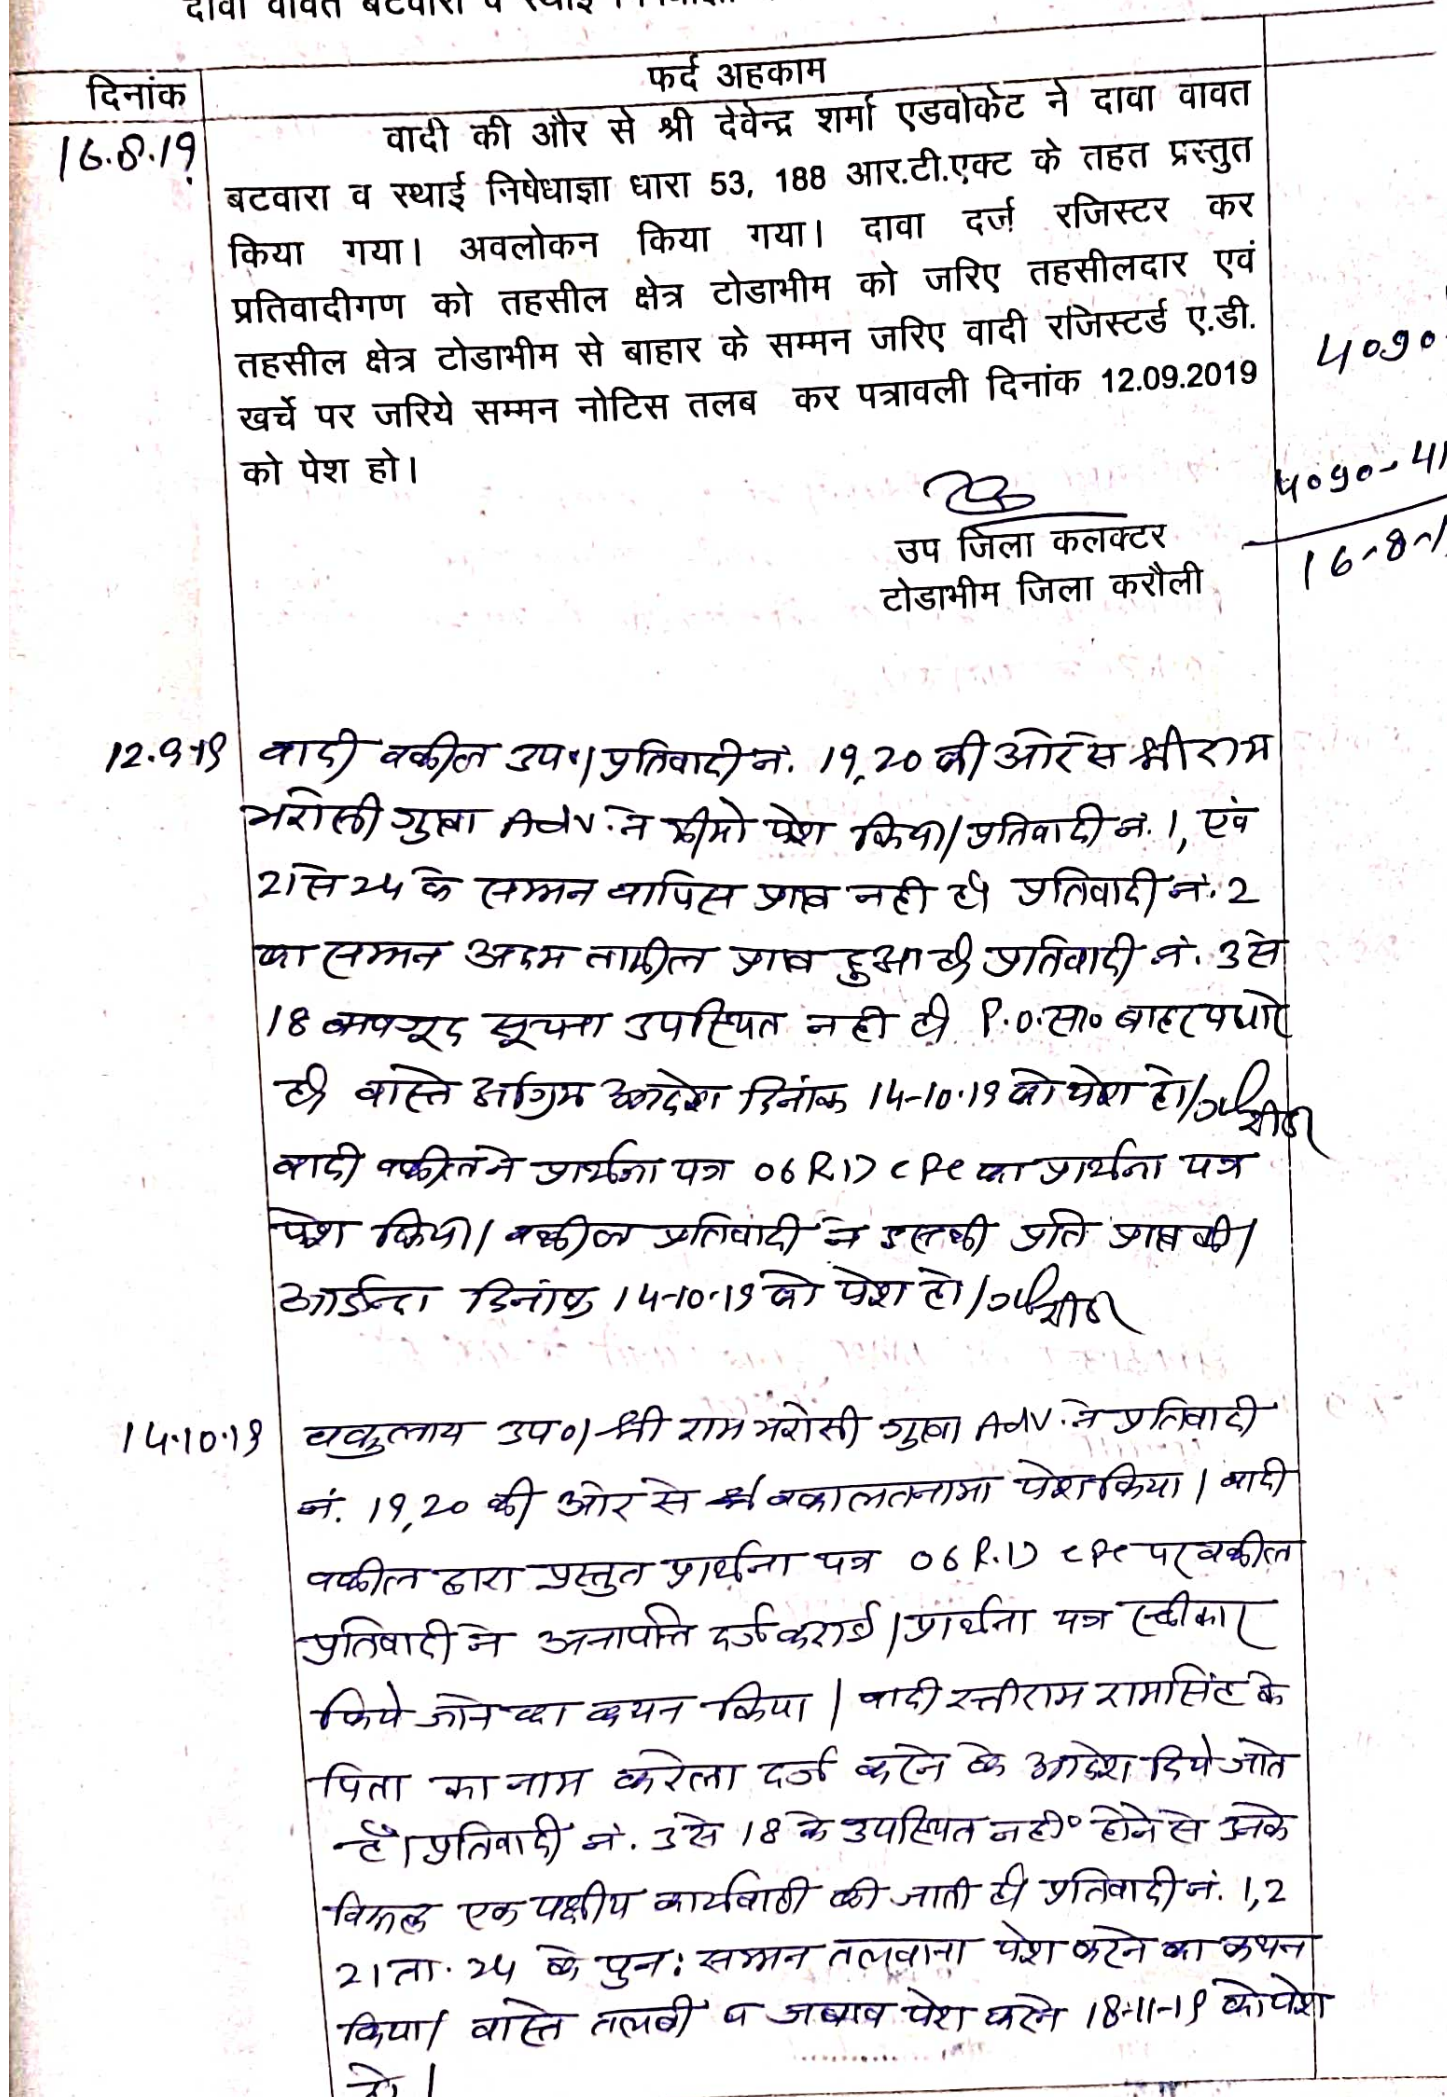 दावा वावत बटवारा व स्थाई
दिनांक
फर्द अहकाम
16.8.19
वादी की और से श्री देवेन्द्र शर्मा एडवोकेट ने दावा वावत
बटवारा व स्थाई निषेधाज्ञा धारा 53, 188 आर.टी.एक्ट के तहत प्रस्तुत
किया गया। अवलोकन किया गया। दावा दर्ज रजिस्टर कर
प्रतिवादीगण को तहसील क्षेत्र टोडाभीम को जरिए तहसीलदार एवं
तहसील क्षेत्र टोडाभीम से बाहार के सम्मन जरिए वादी रजिस्टर्ड ए.डी.
खर्चे पर जरिये सम्मन नोटिस तलब कर पत्रावली दिनांक 12.09.2019
को पेश हो।
4090
4090-41
16-8-1
उप जिला कलक्टर
टोडाभीम जिला करौली
12.9.19 वादी वकील उप०। प्रतिवादी नं. 19,20 की ओर से श्री राम
भरोसी गुप्ता Adv. ने मीमो पेश किया। प्रतिवादी नं. 1, एंव
21 से 24 के सम्मन वापिस प्राप्त नही है। प्रतिवादी नं. 2
का सम्मन अदम तामील प्राप्त हुआ है। प्रतिवादी नं. 3 से
18 बावजूद सूचना उपस्थित नही है। P.O. सा० बाहर पधारे
है। वास्ते अग्रिम आदेश दिनांक 14-10-19 को पेश हो।
वादी वकील ने प्रार्थना पत्र 06 R17 CPC का प्रार्थना पत्र
पेश किया। वकील प्रतिवादी ने इसकी प्रति प्राप्त की।
आईन्दा दिनांक 14-10-19 को पेश हो।
14.10.19 वकुलाय उप०। श्री राम भरोसी गुप्ता Adv. ने प्रतिवादी
नं. 19,20 की ओर से वकालतनामा पेश किया। वादी
वकील द्वारा प्रस्तुत प्रार्थना पत्र 06 R.17 CPC पर वकील
प्रतिवादी ने अनापत्ति दर्ज कराई। प्रार्थना पत्र स्वीकार
किये जाने का कथन किया। वादी रत्तीराम रामसिंह के
पिता का नाम करेला दर्ज करने के आदेश दिये जाते
है। प्रतिवादी नं. 3 से 18 के उपस्थित नही० होने से उनके
विरूद्ध एक पक्षीय कार्यवाही की जाती है। प्रतिवादी नं. 1,2
21 ता. 24 के पुन: सम्मन तलवाना पेश करने का कथन
किया। वास्ते तलवी व जबाव पेश करने 18-11-19 को पेश
हो।